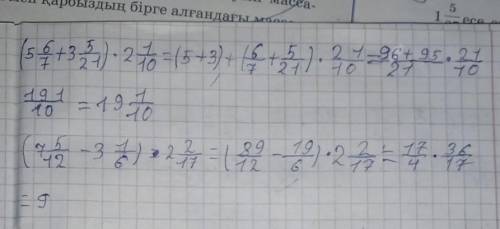 қарбыздың бірге алғандағы масса-
1 5
(5 6/7 + 3 5/21) · 2 1/10 = (5+3) + (6/7 + 5/21) · 21/10 = 96+95/21 · 21/10
191/10 = 19 1/10
(7 5/12 - 3 1/6) · 2 2/17 = (89/12 - 19/6) · 2 2/17 = 17/4 · 36/17
= 9